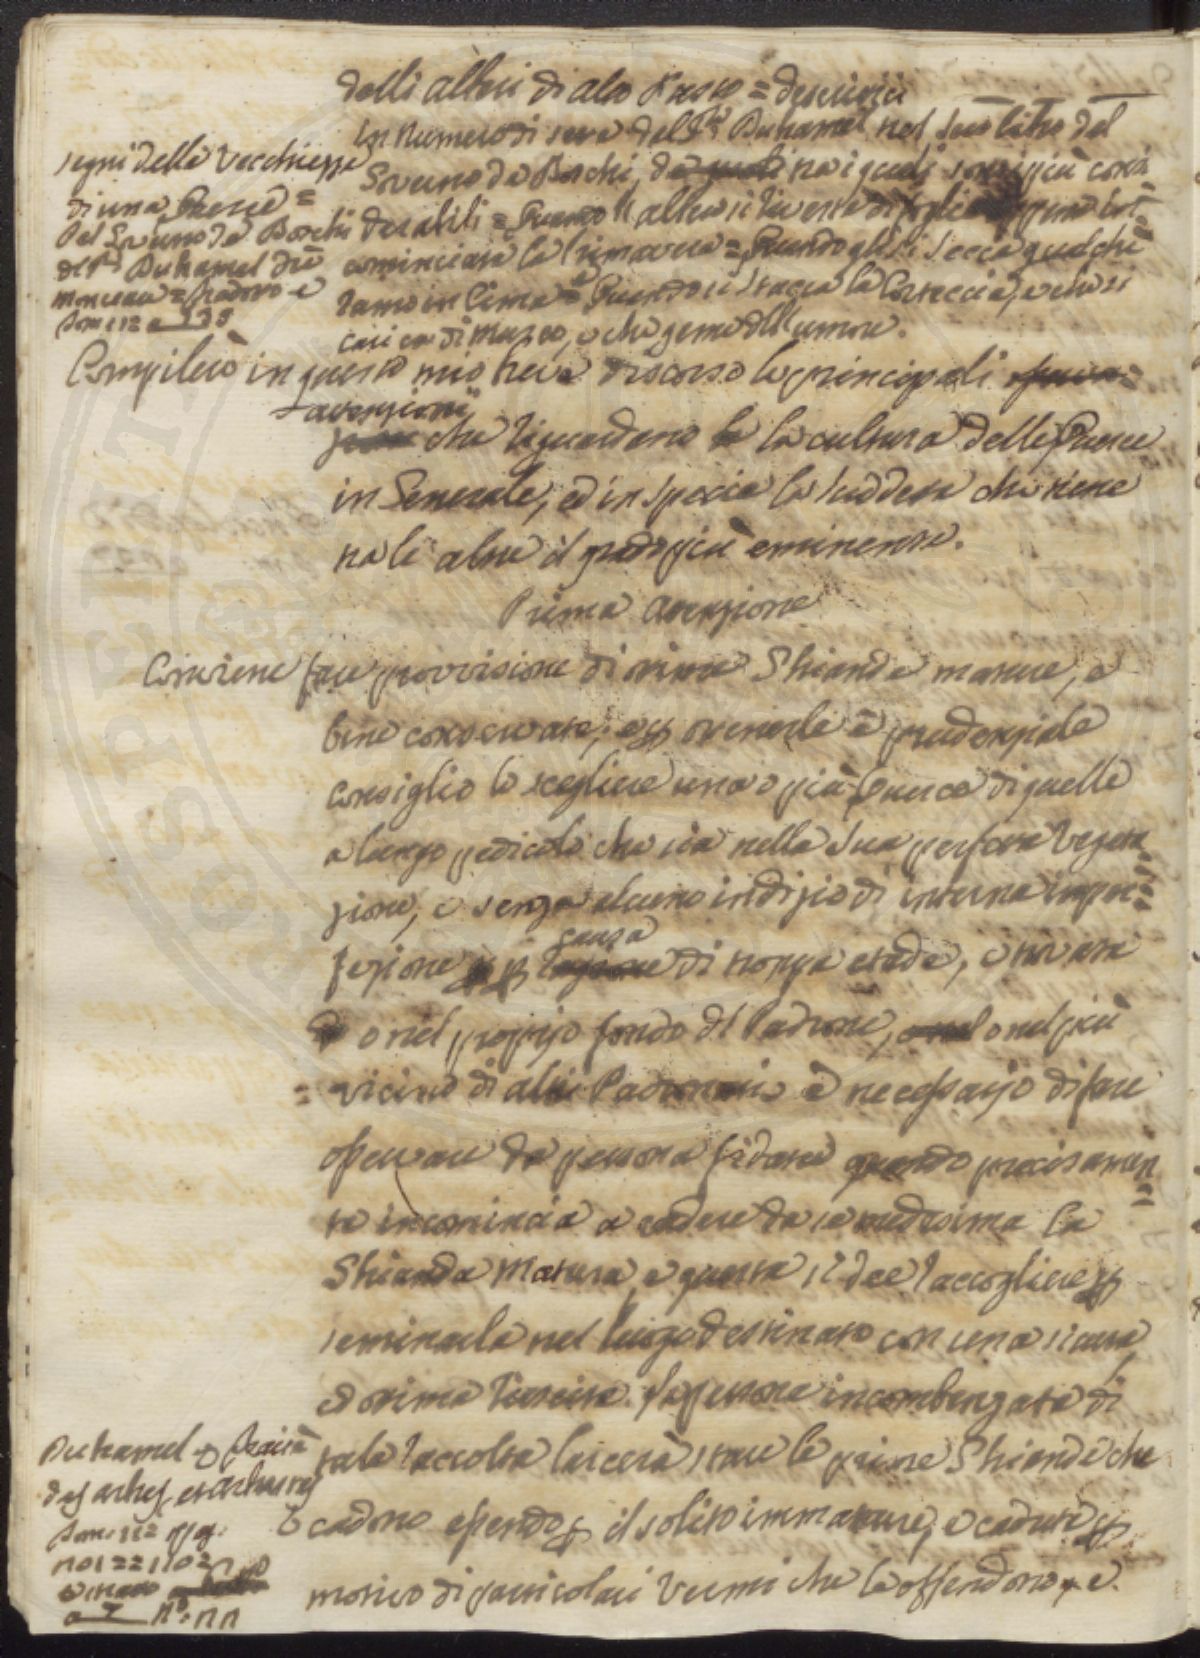 delli alberi di alto Fusto = descritti
in numero di sera del Sr. Duhamel nel suo Libro del
Governo de Boschi, tra i quali sono i più consi
derabili = Quando l'albero si riveste di foglie prima
cominciare la Primavera = Quando gli si secca qualche
ramo in Cima = Quando si stacca la Corteccia, o che si
carica di Musco, o che geme dell'umore.
segni della Vecchiezza
di una Querce =
Del Governo de Boschi
del Sr. Duhamel du
monceau = Padova
Compilerò in questo mio breve discorso le principali
attenzioni
che riguardano la cultura delle Querce
in Generale, ed in specie la suddetta che tiene
tra le altre il grado più eminente.
Prima attenzione
Conviene fare provvisione di ottime Ghiande mature, e
bene conservate; e per ottenerle è prudenziale
consiglio lo scegliere una o più Querce di quelle
a lungo pedicolo che sia nella sua perfetta vegeta
zione, e senza alcuno indizio di interna imper=
fezione per causa di troppa etade, e trovata
o nel proprio fondo del Padrone, o nel più
vicino di altri Padroni è necessario di fare
osservare da persona fidata quando precisamen
te incomincia a cadere da se medesima la
Ghianda Matura, e questa si dee raccogliere per
seminarla nel luogo destinato con una sicura
ed ottima riuscita. La persona incombenzata di
tale raccolta lascerà stare le prime Ghiande che
cadono essendo per il solito immature, e cadute per
motivo di particolari Vermi che le offendono, e
Duhamel Traité
des arbres, et arbustes